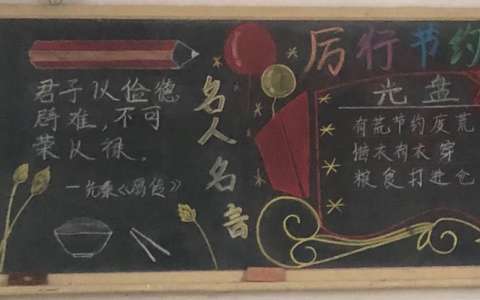 君子以俭德
辟难，不可
荣以禄．
一先秦《易传》
名人名言
厉行节约
光盘
有荒节约度荒
惜衣有衣穿
粮食打进仓